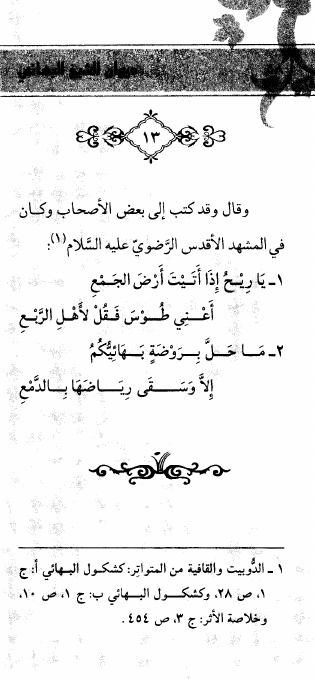 ديوان الشيخ البهائي
١٣
وقال وقد كتب إلى بعض الأصحاب وكان
في المشهد الأقدس الرَّضويّ عليه السَّلام(١):
١ـ يَا رِيْـحُ إِذَا أَتَيْتَ أَرْضَ الجَمْعِ
أَعْـنِي طُـوْسَ فَـقُلْ لأَهْلِ الرَّبْعِ
٢ـ مَـا حَـلَّ بِـرَوْضَةٍ بَـهَائِيُّكُمُ
إِلاَّ وَسَـقَى رِيَـاضَهَا بِـالدَّمْعِ
١ ـ الدُّوبيت والقافية من المتواتِر: كشكول البهائي أ: ج
١، ص ٢٨، وكشكـول البهائي ب: ج ١، ص ١٠،
وخلاصة الأثر: ج ٣، ص ٤٥٤.